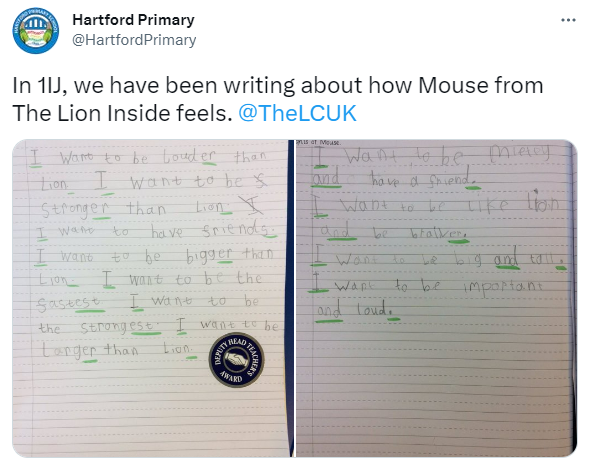 Hartford Primary
@HartfordPrimary
In 1IJ, we have been writing about how Mouse from
The Lion Inside feels. @TheLCUK
I want to be Louder than
Lion. I want to be
Stronger than Lion.
I want to have friends.
I want to be bigger than
Lion. I want to be the
fastest. I want to be
the strongest. I want to be
Larger than Lion.
DEPUTY HEAD TEACHER'S
AWARD
of Mouse.
I want to be
and have a friend.
I want to be like lion
and be
I want to be big and tall.
I want to be important
and loud.